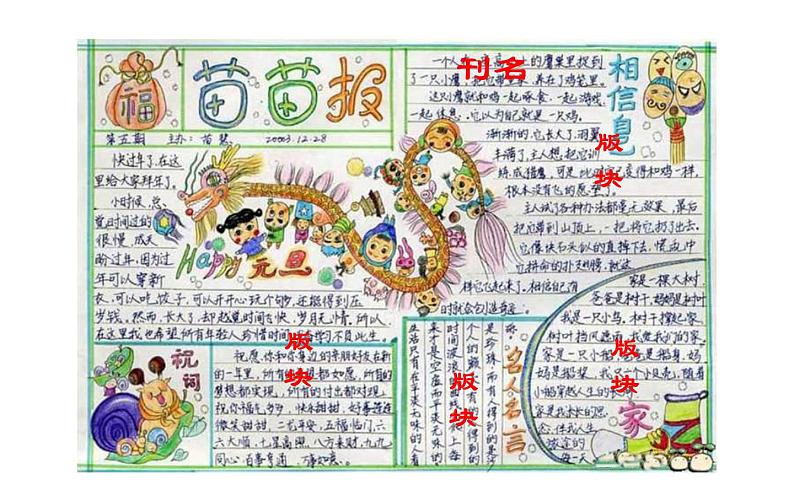 福
苗苗报
第五期 主办：苗慧 2003.12.28
快过年了,在这
里给大家拜年了。
小时候,总
觉时间过的
很慢,成天
盼过年,因为过
年可以穿新
衣,可以吃饺子,可以开开心玩个够,还能得到压
岁钱。然而,长大了,却越觉时间苦快,岁月无情,所以
在这里我也希望所有年轻人珍惜时间
Happy 元旦
刊名
相信自
一个人
上的鹰巢里捉到
了一只小鹰,把它带
养在了鸡笼里。
这只鹰就和鸡一起啄食,一起游戏,
一起休息,它以为自己就是一只鸡。
渐渐的,它长大了,羽翼
丰满了,主人想把它训
练成猎鹰,可是
变得和鸡一样,
根本没有飞的愿望了。
主人试了各种办法都毫无效果,最后
把它带到山顶上,一把将它扔出去。
它像块石头似的直掉下去,慌乱中
它拼命的扑打翅膀,就这
样它飞起来了。相信自己有
时就会创造奇迹。
版块
祝词
祝愿,你和你身边的亲朋好友在新
的一年里,所有的
想都如愿,所有的
梦想都实现,所有的
付出都对现!
祝你福气多多,快乐甜甜,好事连连
微笑甜甜,二龙平安,五福临门,六
六大顺,七星高照,八方来财,九九
同心,百事亨通,万事如意。
版块
名人名言
生活只有在平淡无味的人看
来才是空虚而平淡无味的。
版块
家
家是一棵大树,
爸爸是树干,妈妈是树叶
我是一只小鸟,树干撑起家
树叶挡风遮雨
我爱我们的家。
家是一只小船
是船身,妈
妈是船桨,我
一个小贝壳,随着
小船穿越人生的
家是我永久的思
念,伴我人生
旅途的
每一天
版块